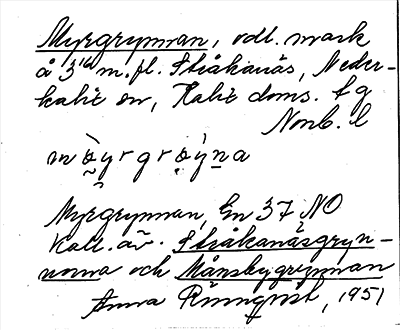 Myrgrynnan, odl. mark
å 3¹⁶ m.fl. Stråkanäs, Neder-
kalix sn, Kalix doms. fg
Norrb. l
Myrgrynnan, En 37 NO
Kall. äv. Stråkanäsgryn-
norna och Månsbygrynnan
Anna Rönnqvist, 1951